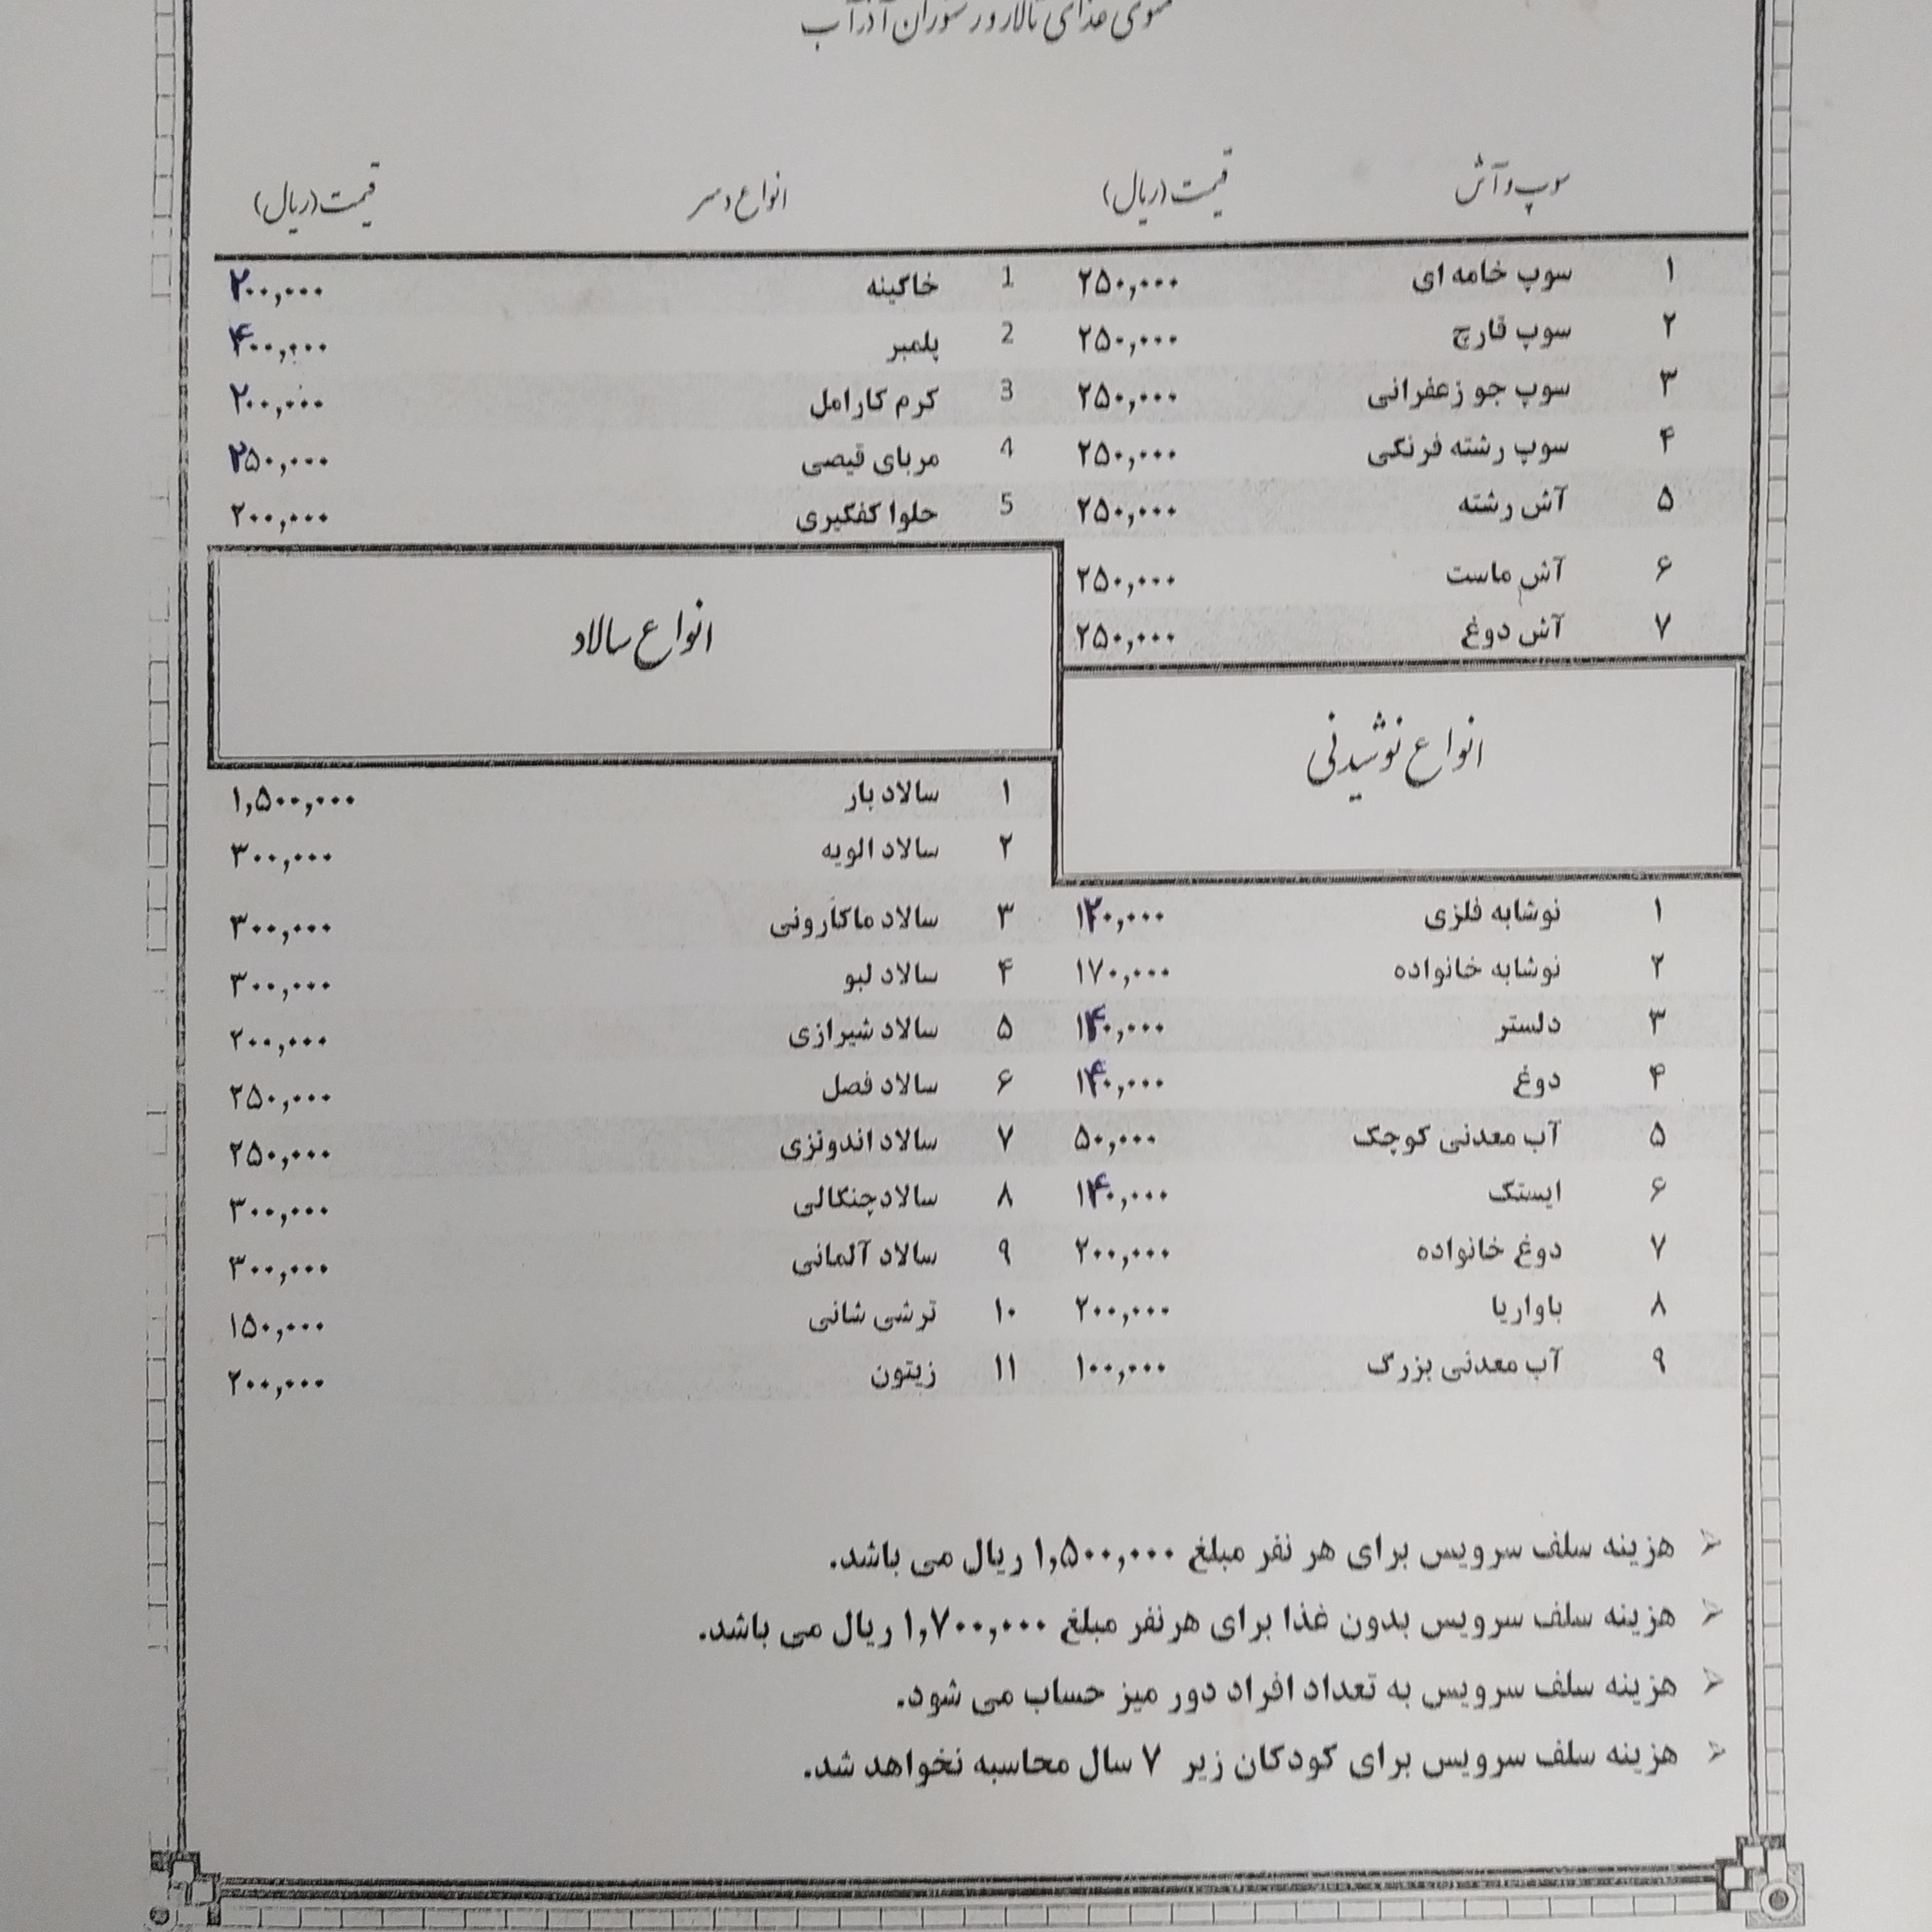 منوی غذای تالار و رستوران آذرآب
سوپ و آش قیمت (ریال) انواع دسر قیمت (ریال)
۱ سوپ خامه ای ۲۵۰,۰۰۰ 1 خاگینه ۲۰۰,۰۰۰
۲ سوپ قارچ ۲۵۰,۰۰۰ 2 پلمبر ۴۰۰,۰۰۰
۳ سوپ جو زعفرانی ۲۵۰,۰۰۰ 3 کرم کارامل ۲۰۰,۰۰۰
۴ سوپ رشته فرنگی ۲۵۰,۰۰۰ 4 مربای قیصی ۲۵۰,۰۰۰
۵ آش رشته ۲۵۰,۰۰۰ 5 حلوا کفگیری ۲۰۰,۰۰۰
۶ آش ماست ۲۵۰,۰۰۰
۷ آش دوغ ۲۵۰,۰۰۰
انواع سالاد
انواع نوشیدنی
۱ سالاد بار ۱,۵۰۰,۰۰۰
۲ سالاد الویه ۳۰۰,۰۰۰
۱ نوشابه فلزی ۱۲۰,۰۰۰ ۳ سالاد ماکارونی ۳۰۰,۰۰۰
۲ نوشابه خانواده ۱۷۰,۰۰۰ ۴ سالاد لبو ۳۰۰,۰۰۰
۳ دلستر ۱۴۰,۰۰۰ ۵ سالاد شیرازی ۲۰۰,۰۰۰
۴ دوغ ۱۴۰,۰۰۰ ۶ سالاد فصل ۲۵۰,۰۰۰
۵ آب معدنی کوچک ۵۰,۰۰۰ ۷ سالاد اندونزی ۲۵۰,۰۰۰
۶ ایستک ۱۴۰,۰۰۰ ۸ سالادجنگالی ۳۰۰,۰۰۰
۷ دوغ خانواده ۲۰۰,۰۰۰ ۹ سالاد آلمانی ۳۰۰,۰۰۰
۸ باواریا ۲۰۰,۰۰۰ ۱۰ ترشی شانی ۱۵۰,۰۰۰
۹ آب معدنی بزرگ ۱۰۰,۰۰۰ ۱۱ زیتون ۲۰۰,۰۰۰
هزینه سلف سرویس برای هر نفر مبلغ ۱,۵۰۰,۰۰۰ ریال می باشد.
هزینه سلف سرویس بدون غذا برای هرنفر مبلغ ۱,۷۰۰,۰۰۰ ریال می باشد.
هزینه سلف سرویس به تعداد افراد دور میز حساب می شود.
هزینه سلف سرویس برای کودکان زیر ۷ سال محاسبه نخواهد شد.